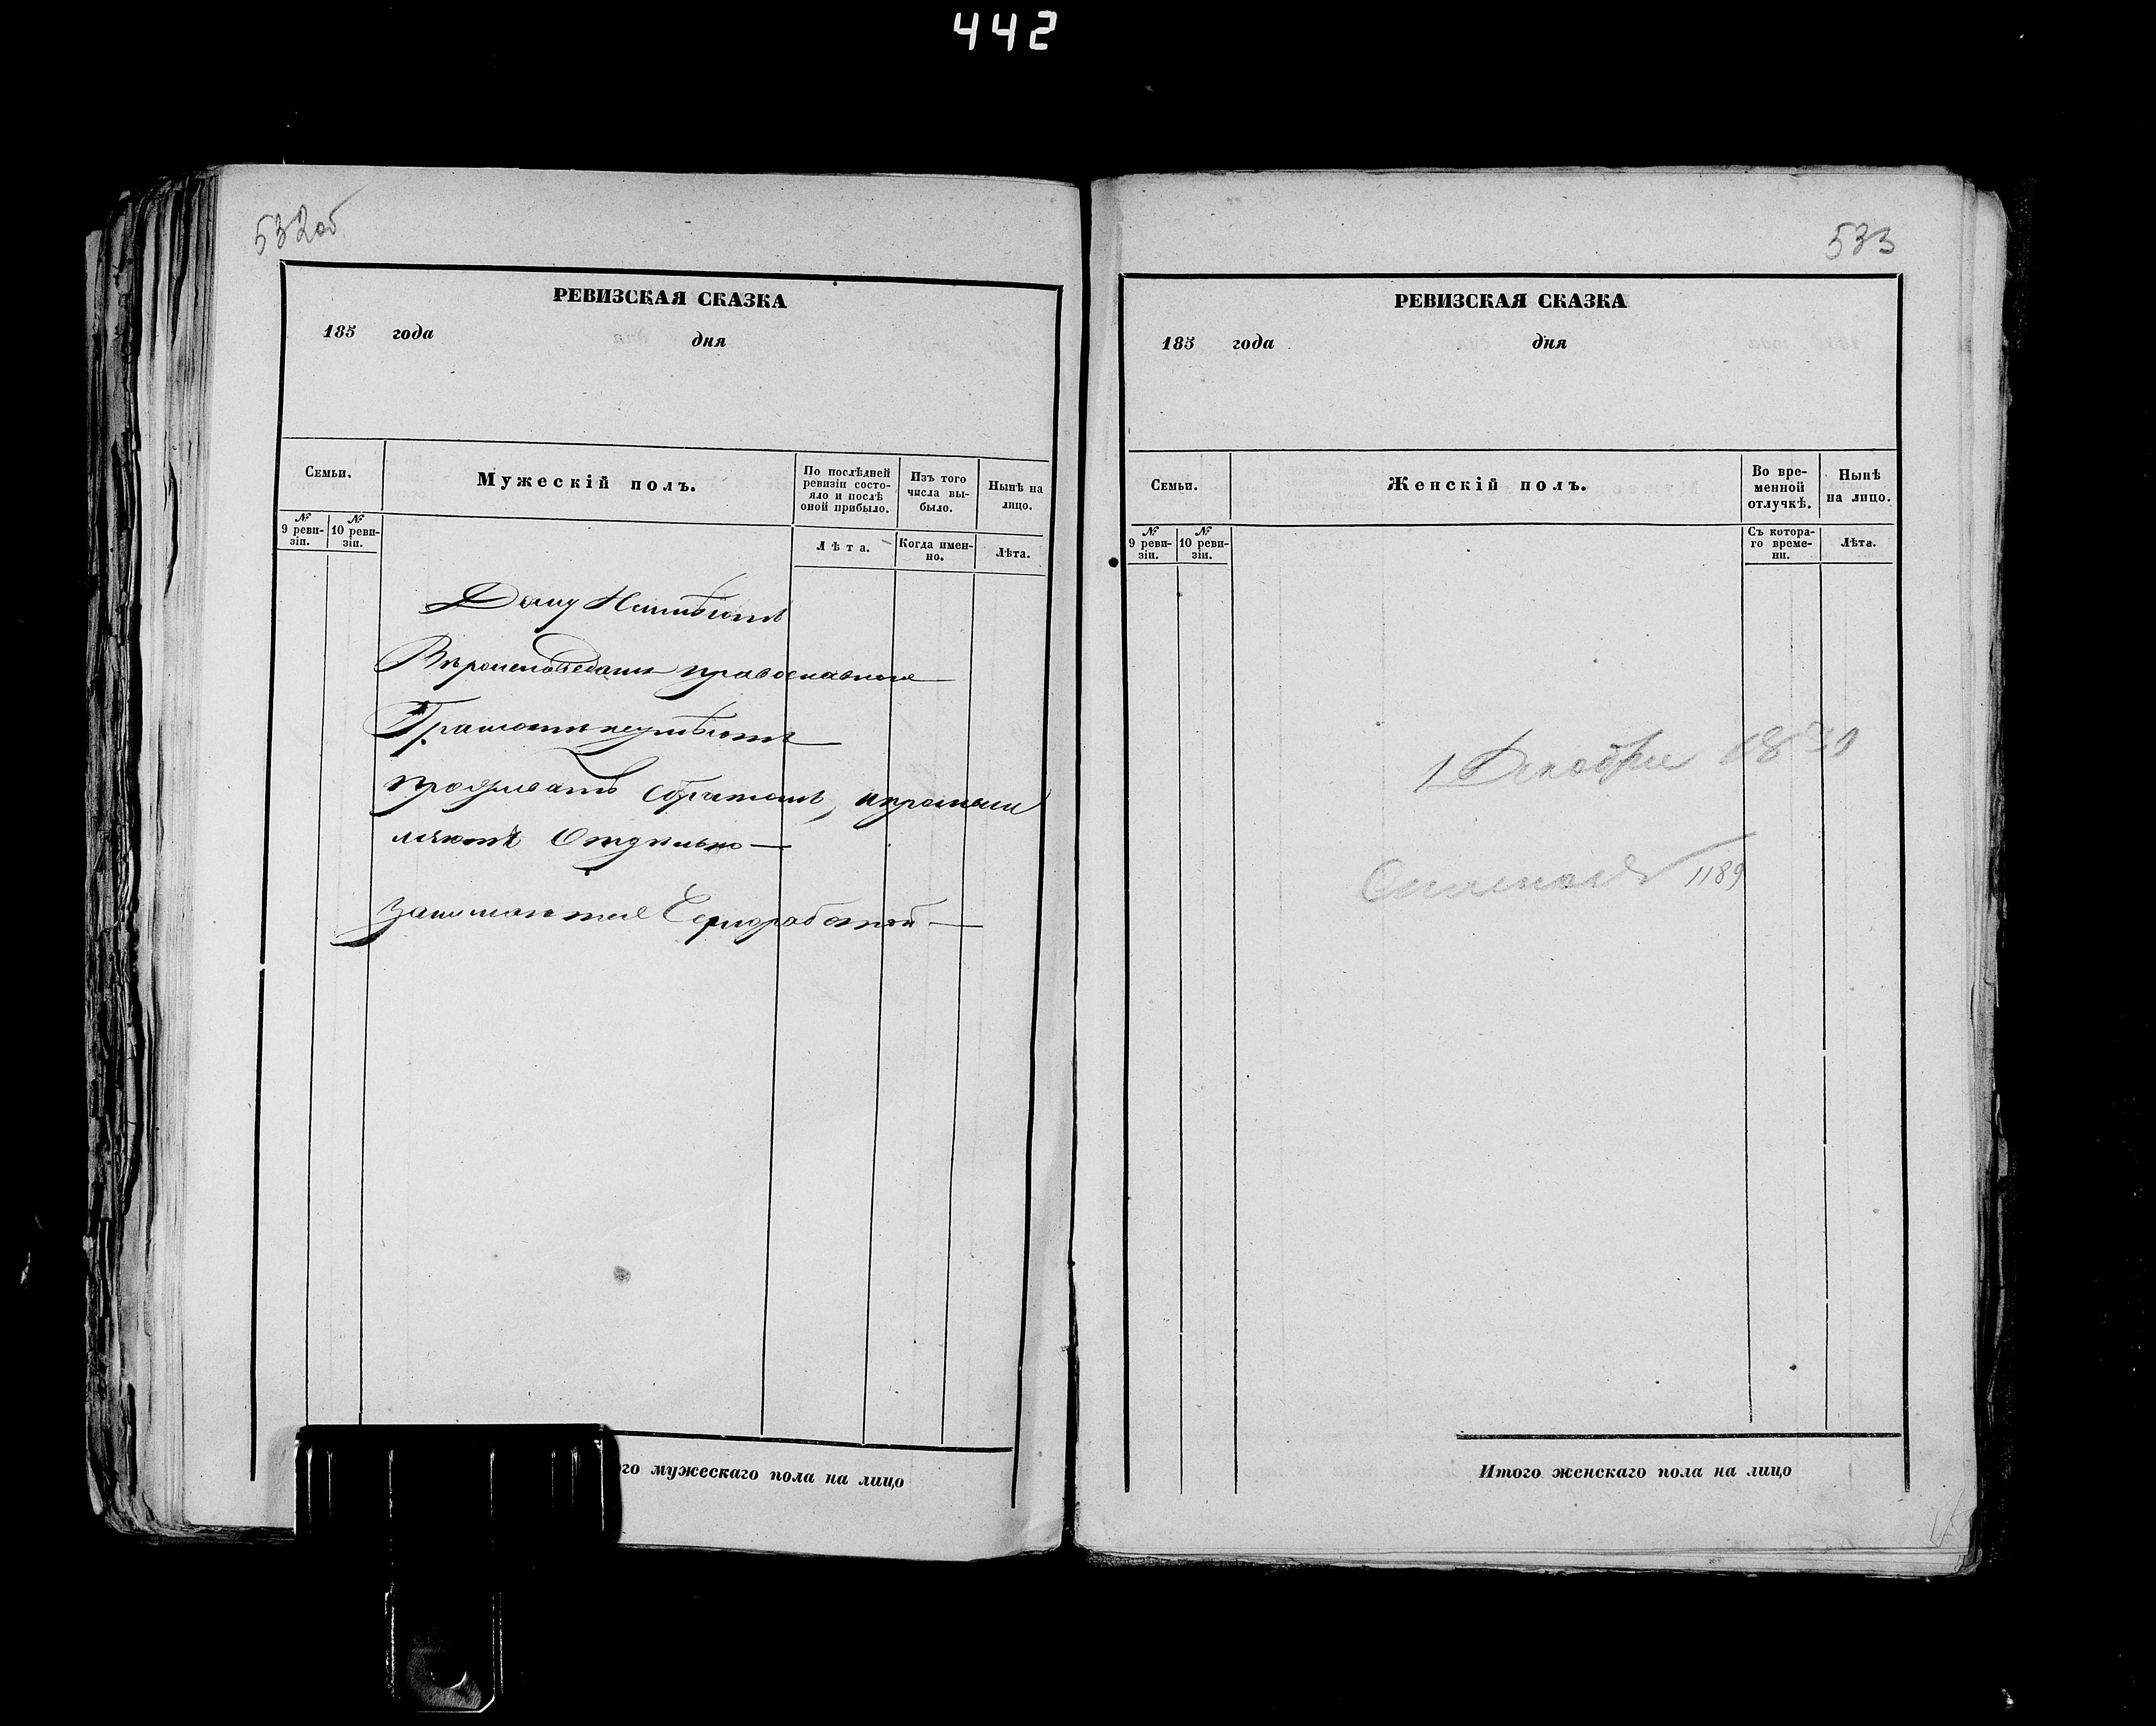 442
532об
РЕВИЗСКАЯ СКАЗКА
185 года дня
Семьи.
Мужескій полъ.
По послѣдней ревизіи состо-яло и послѣ оной прибыло.
Изъ того числа вы-было.
Нынѣ на лицо.
№ 9 реви-зіи.
№ 10 реви-зіи.
Лѣта.
Когда имен-но.
Лѣта.
Дому Неимѣютъ
Вѣроисповѣданія православнаго
Грамоти неумѣютъ
проживатъ Братомъ, ипромыш
ляютъ Отдѣльно
занимаются Чернработой
го мужескаго пола на лицо
533
РЕВИЗСКАЯ СКАЗКА
185 года дня
Семьи.
Женскій полъ.
Во вре-менной отлучкѣ.
Нынѣ на лицо.
№ 9 реви-зіи.
№ 10 реви-зіи.
Съ котора-го време-ни.
Лѣта.
1 Декабря 18
1189
Итого женскаго пола на лицо